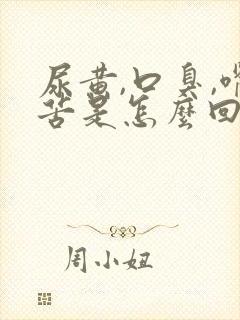 尿黄,口臭,嘴
苦是怎麼回
周小妞